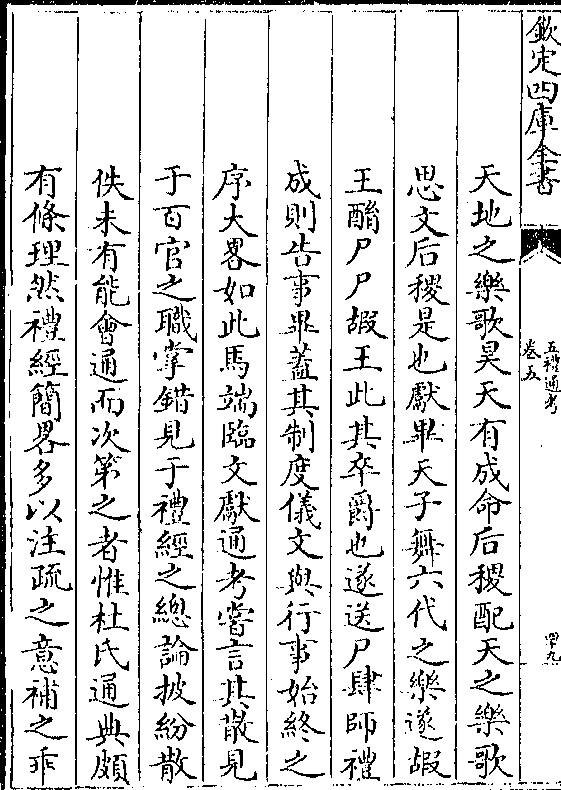 欽定四庫全書
五禮通考
卷五
四九
天地之樂歌昊天有成命后稷配天之樂歌
思文后稷是也獻畢天子舞六代之樂遂嘏
王酳尸尸嘏王此其卒爵也遂送尸肆師禮
成則告事畢蓋其制度儀文與行事始終之
序大畧如此馬端臨文獻通考嘗言其散見
于百官之職掌錯見于禮經之總論披紛散
佚未有能會通而次第之者惟杜氏通典頗
有條理然禮經簡畧多以注疏之意補之乖